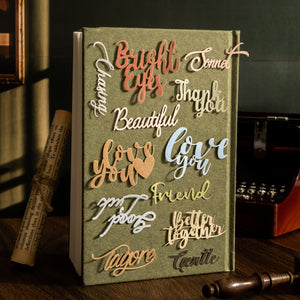 Bright
Eyes
Sonnet
Charming
Thank
You
Beautiful
love
you
love
you
Friend
Good
Luck
Better
together
Tagore
Gentle